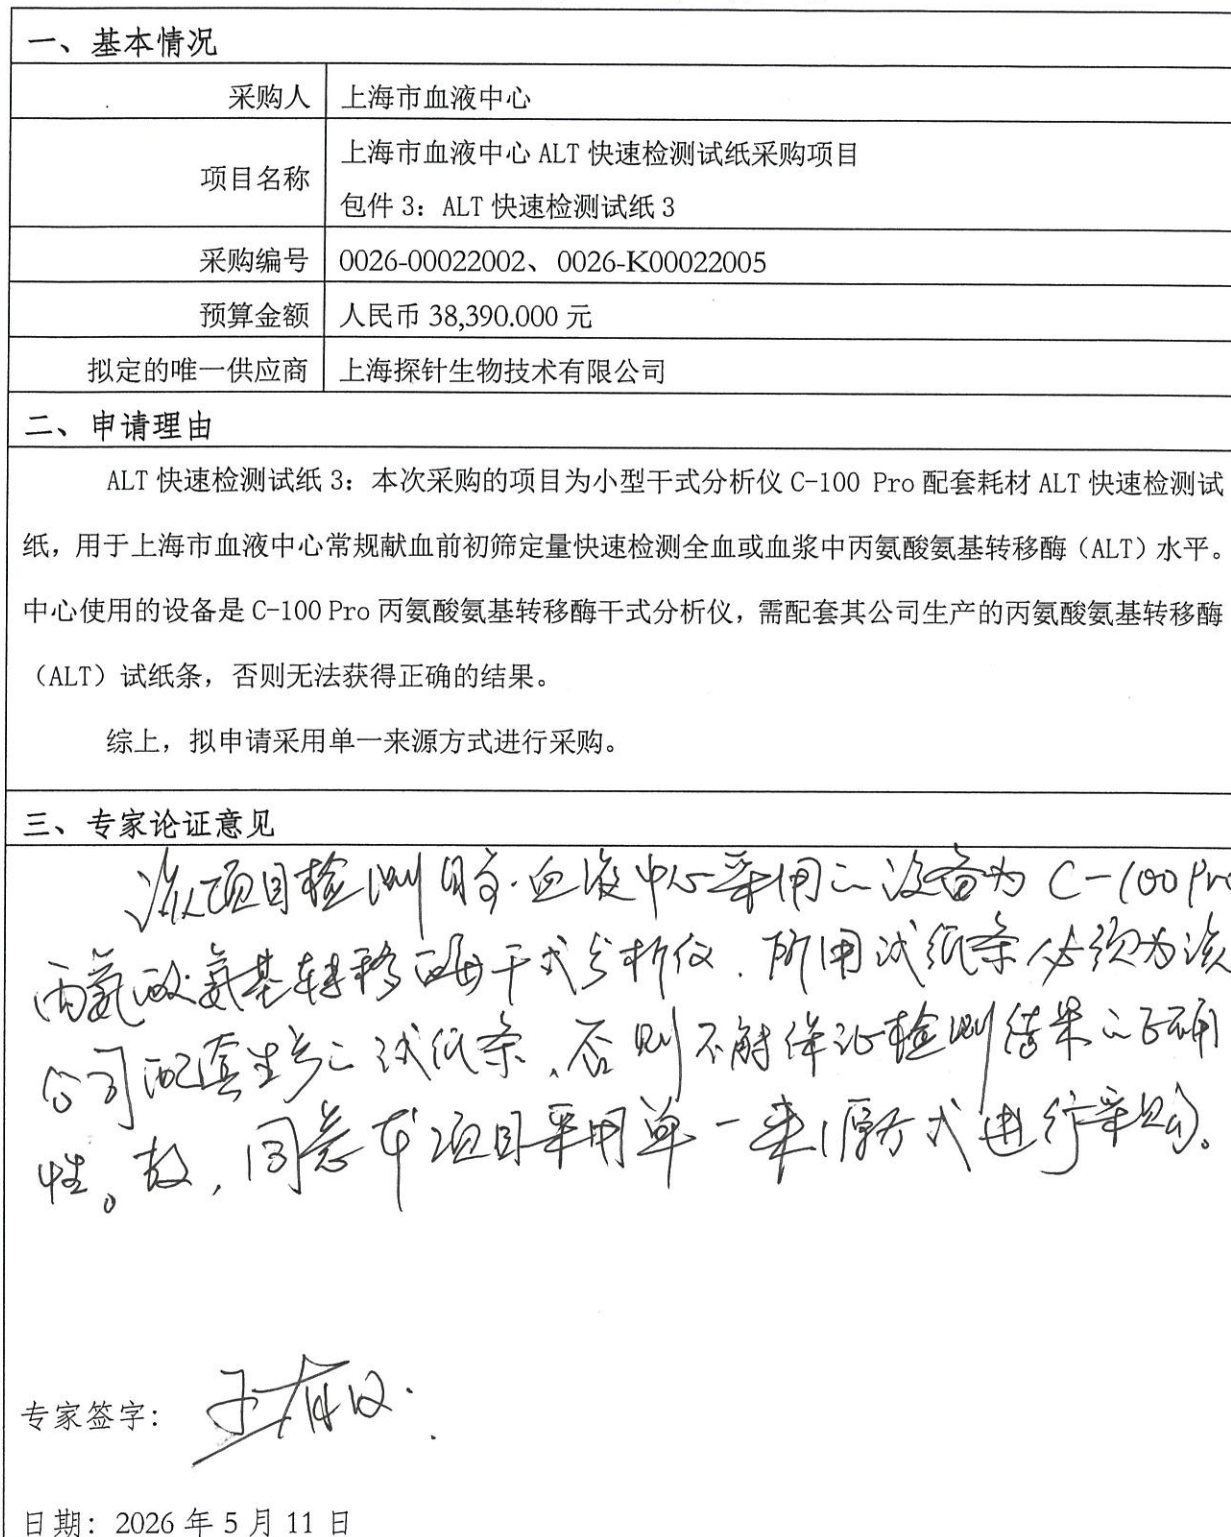 一、基本情况
采购人 上海市血液中心
项目名称 上海市血液中心 ALT 快速检测试纸采购项目
包件 3：ALT 快速检测试纸 3
采购编号 0026-00022002、0026-K00022005
预算金额 人民币 38,390.000 元
拟定的唯一供应商 上海探针生物技术有限公司
二、申请理由
ALT 快速检测试纸 3：本次采购的项目为小型干式分析仪 C-100 Pro 配套耗材 ALT 快速检测试
纸，用于上海市血液中心常规献血前初筛定量快速检测全血或血浆中丙氨酸氨基转移酶（ALT）水平。
中心使用的设备是 C-100 Pro 丙氨酸氨基转移酶干式分析仪，需配套其公司生产的丙氨酸氨基转移酶
（ALT）试纸条，否则无法获得正确的结果。
综上，拟申请采用单一来源方式进行采购。
三、专家论证意见
该项目检测目前血液中心采用之设备为 C-100 Pro
丙氨酸氨基转移酶干式分析仪，所用试纸条必须为该
公司配套生产之试纸条，否则不能保证检测结果之正确
性。故，同意本项目采用单一来源方式进行采购。
专家签字：
日期：2026 年 5 月 11 日